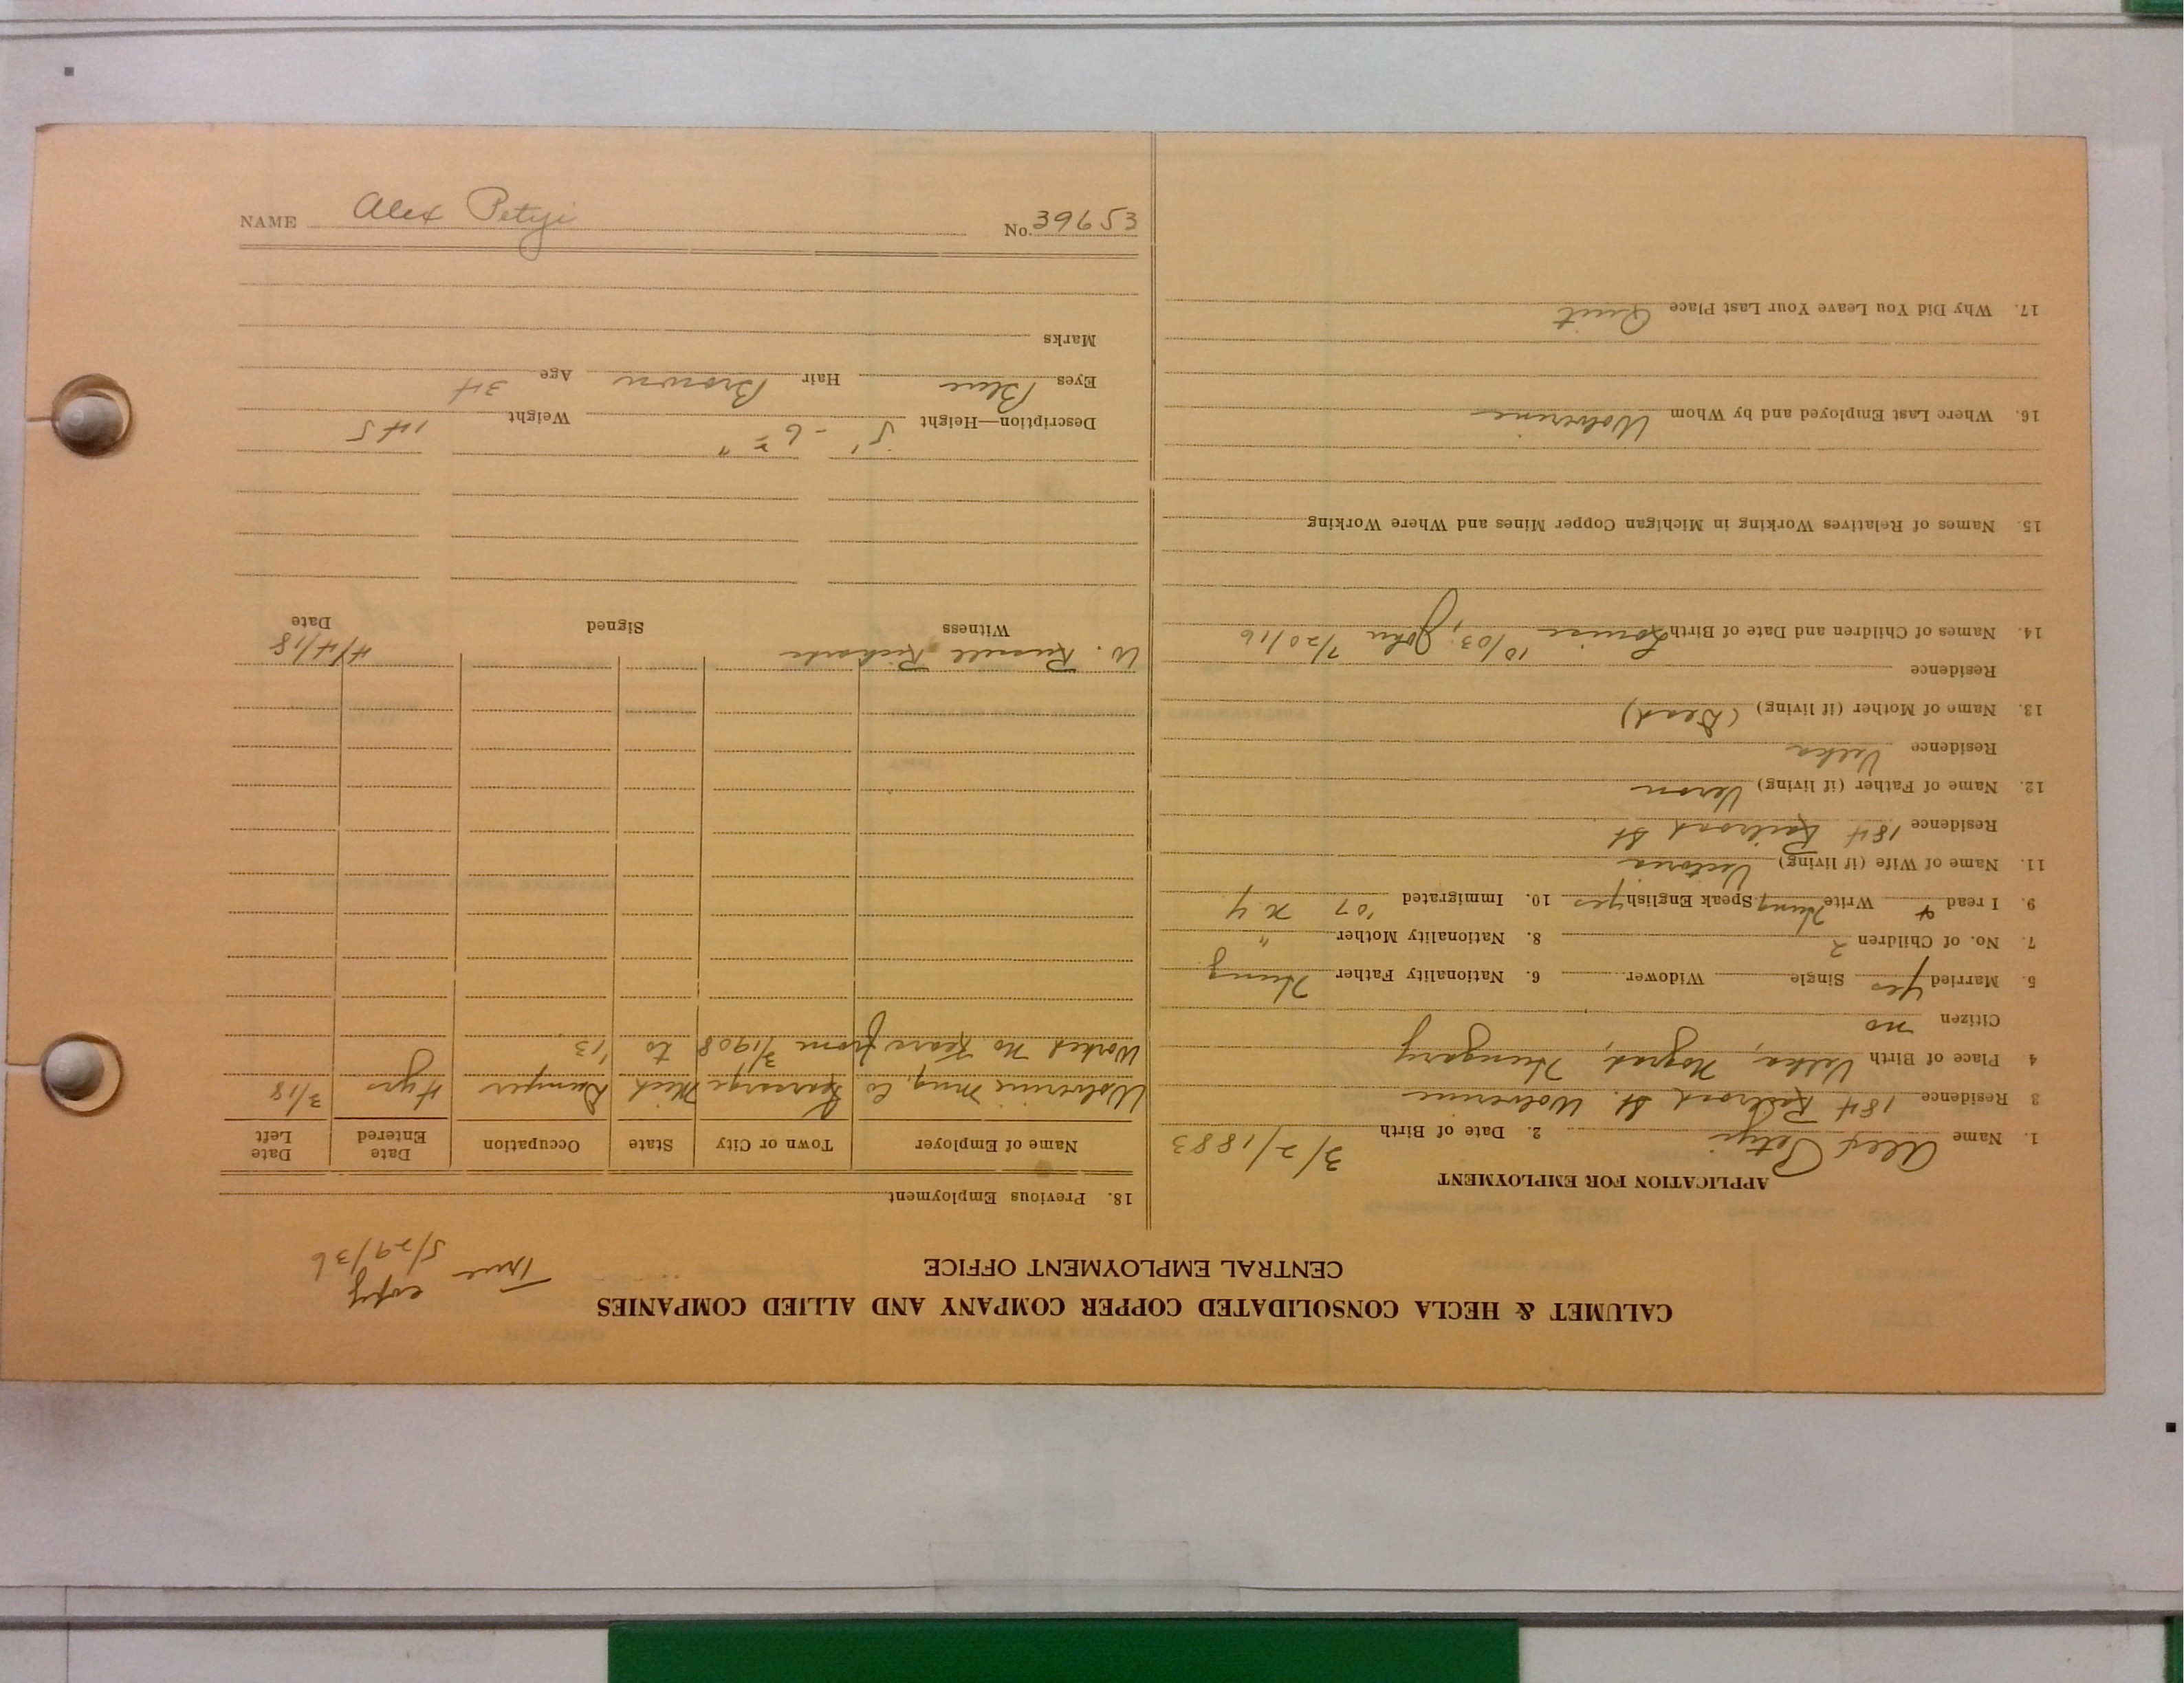 NAME Alex Petyi No. 39653
CALUMET & HECLA CONSOLIDATED COPPER COMPANY AND ALLIED COMPANIES
CENTRAL EMPLOYMENT OFFICE
True copy
5/29/36
APPLICATION FOR EMPLOYMENT
1. Name Alex Petyi 2. Date of Birth 3/2/1883
3 Residence 184 Railroad St. Wolverine
4 Place of Birth Velka, Nograd, Hungary
Citizen no
5. Married Yes Single Widower 6. Nationality Father Hung
7. No. of Children 2 8. Nationality Mother "
9. I read & Write Hung Speak English yes 10. Immigrated '07 N Y
11. Name of Wife (if living) Victoria
Residence 184 Railroad St
12. Name of Father (if living) Veron
Residence Velka
13. Name of Mother (if living) (Dead)
Residence
14. Names of Children and Date of Birth Louise 10/03; John 7/20/16
15. Names of Relatives Working in Michigan Copper Mines and Where Working
16. Where Last Employed and by Whom Wolverine
17. Why Did You Leave Your Last Place Quit
18. Previous Employment
Name of Employer Town or City State Occupation Date Entered Date Left
Wolverine Mng. Co Kearsarge Mich Dumper 4 yrs 3/18
Worked No Kears from 3/1908 to '13
W. Russell Richards 4/4/18
Witness Signed Date
Description—Height 5' - 6 " Weight 145
Eyes Blue Hair Brown Age 34
Marks